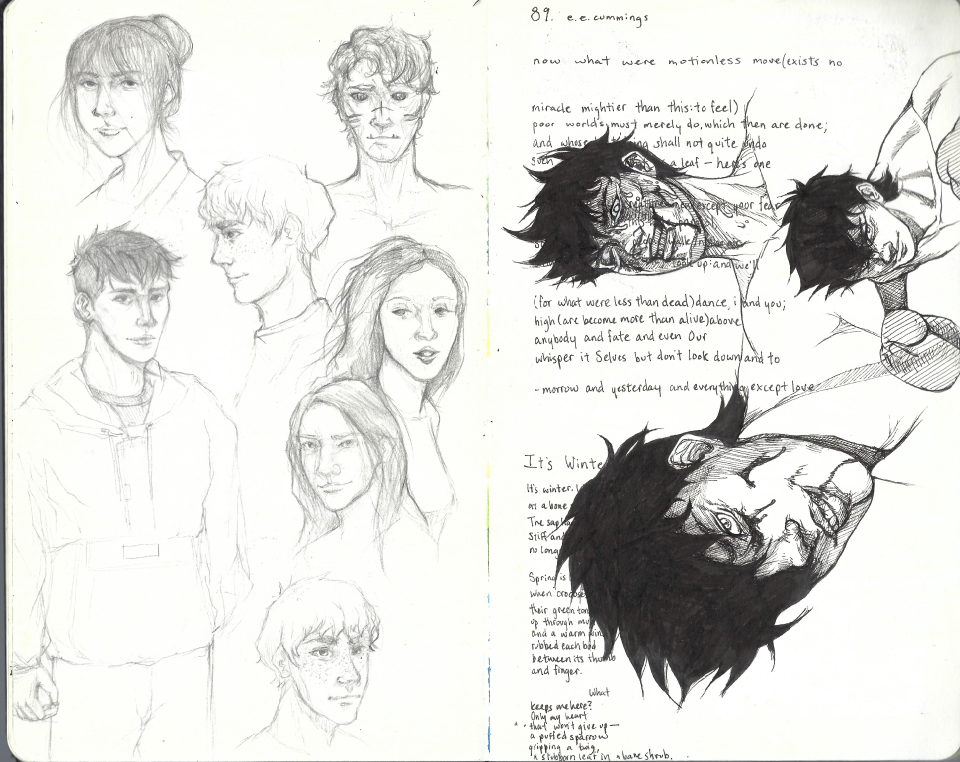 89. e.e.cummings
now what were motionless move(exists no
miracle mightier than this:to feel)
poor worlds must merely do, which then are done;
and whose shall not quite undo
such a leaf — here's one
except your fear
look up:and we'll
(for what were less than dead)dance, i and you;
high(are become more than alive)above
anybody and fate and even Our
whisper it Selves but don't look down and to
-morrow and yesterday and everything except love
It's Winte
It's winter. I
as a bone
The sap ha
Stiff and
no long
Spring is
when crocuses
their green ton
up through mu
and a warm
rubbed each bud
between its thumb
and finger.
What
keeps me here?
Only my heart
that won't give up—
a puffed sparrow
gripping a twig,
a stubborn leaf in a bare shrub.